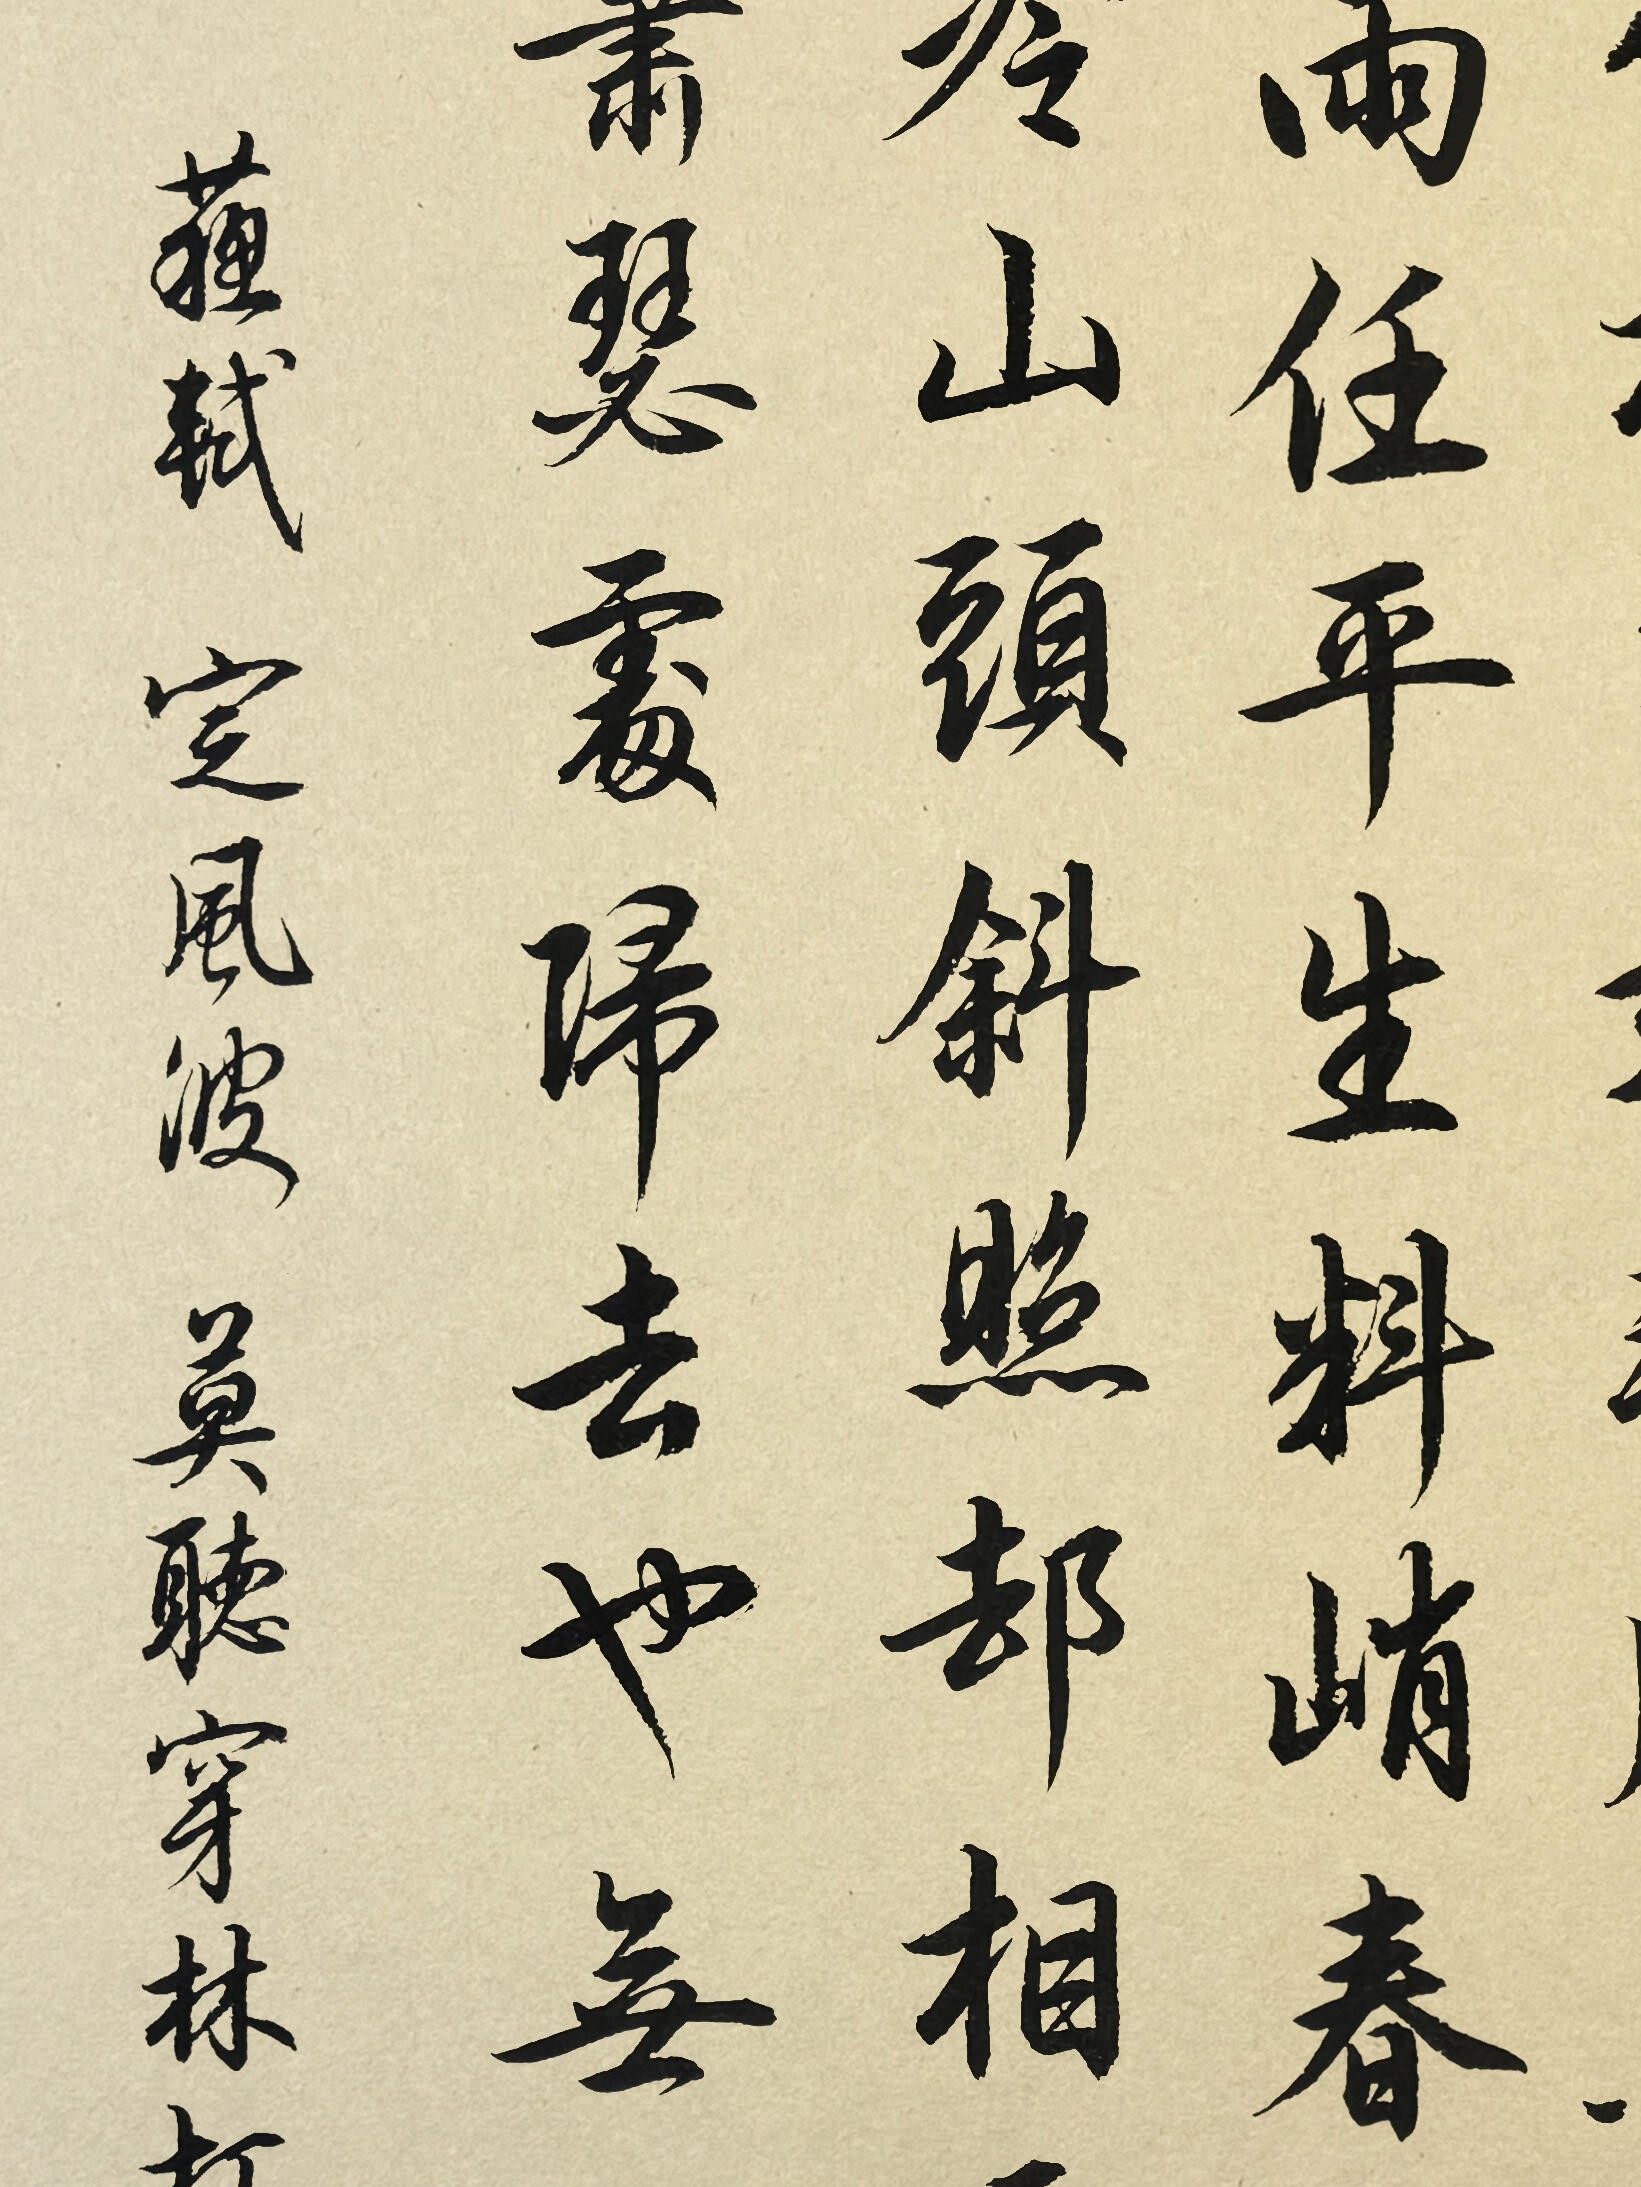 雨任平生料峭春
冷山頭斜照却相
蕭瑟處歸去也無
蘇軾 定風波 莫聽穿林打